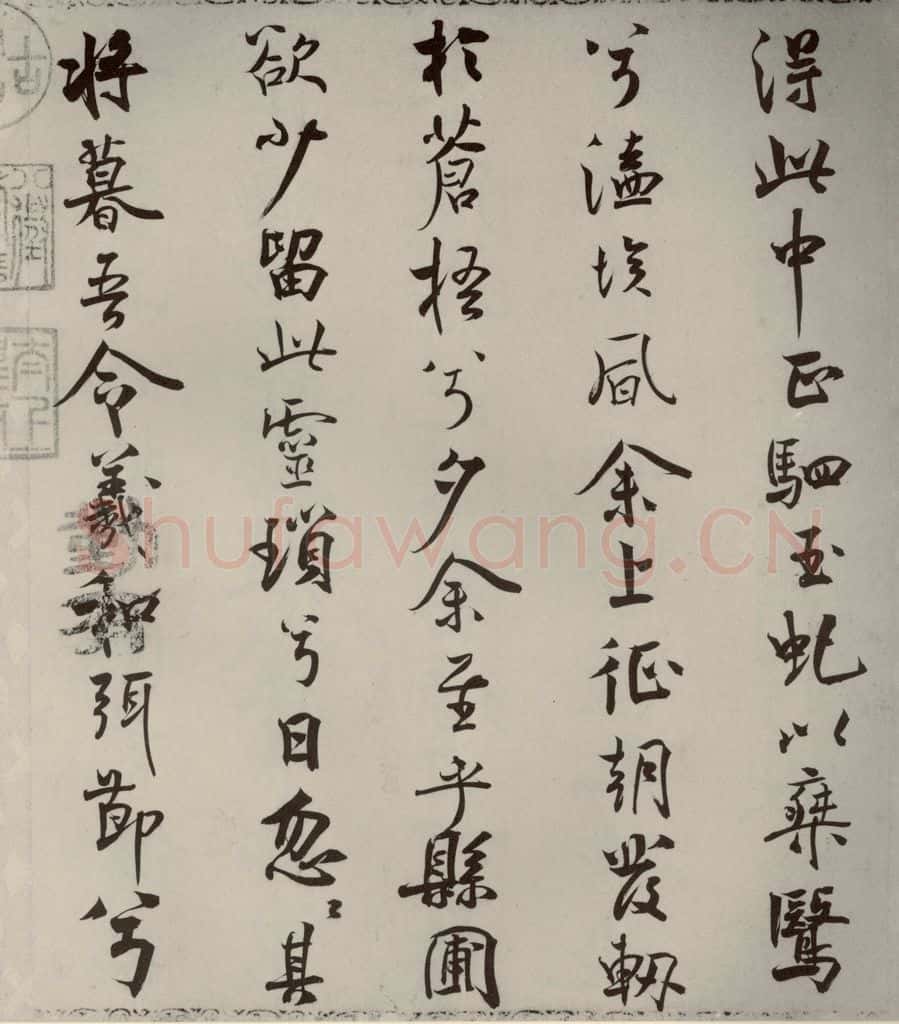 得此中正駟玉虬以椉鷖
兮溘埃風余上征朝發軔
於蒼梧兮夕余至乎縣圃
欲少留此靈瑣兮日忽〻其
將暮吾令羲和弭節兮
shufawang.CN